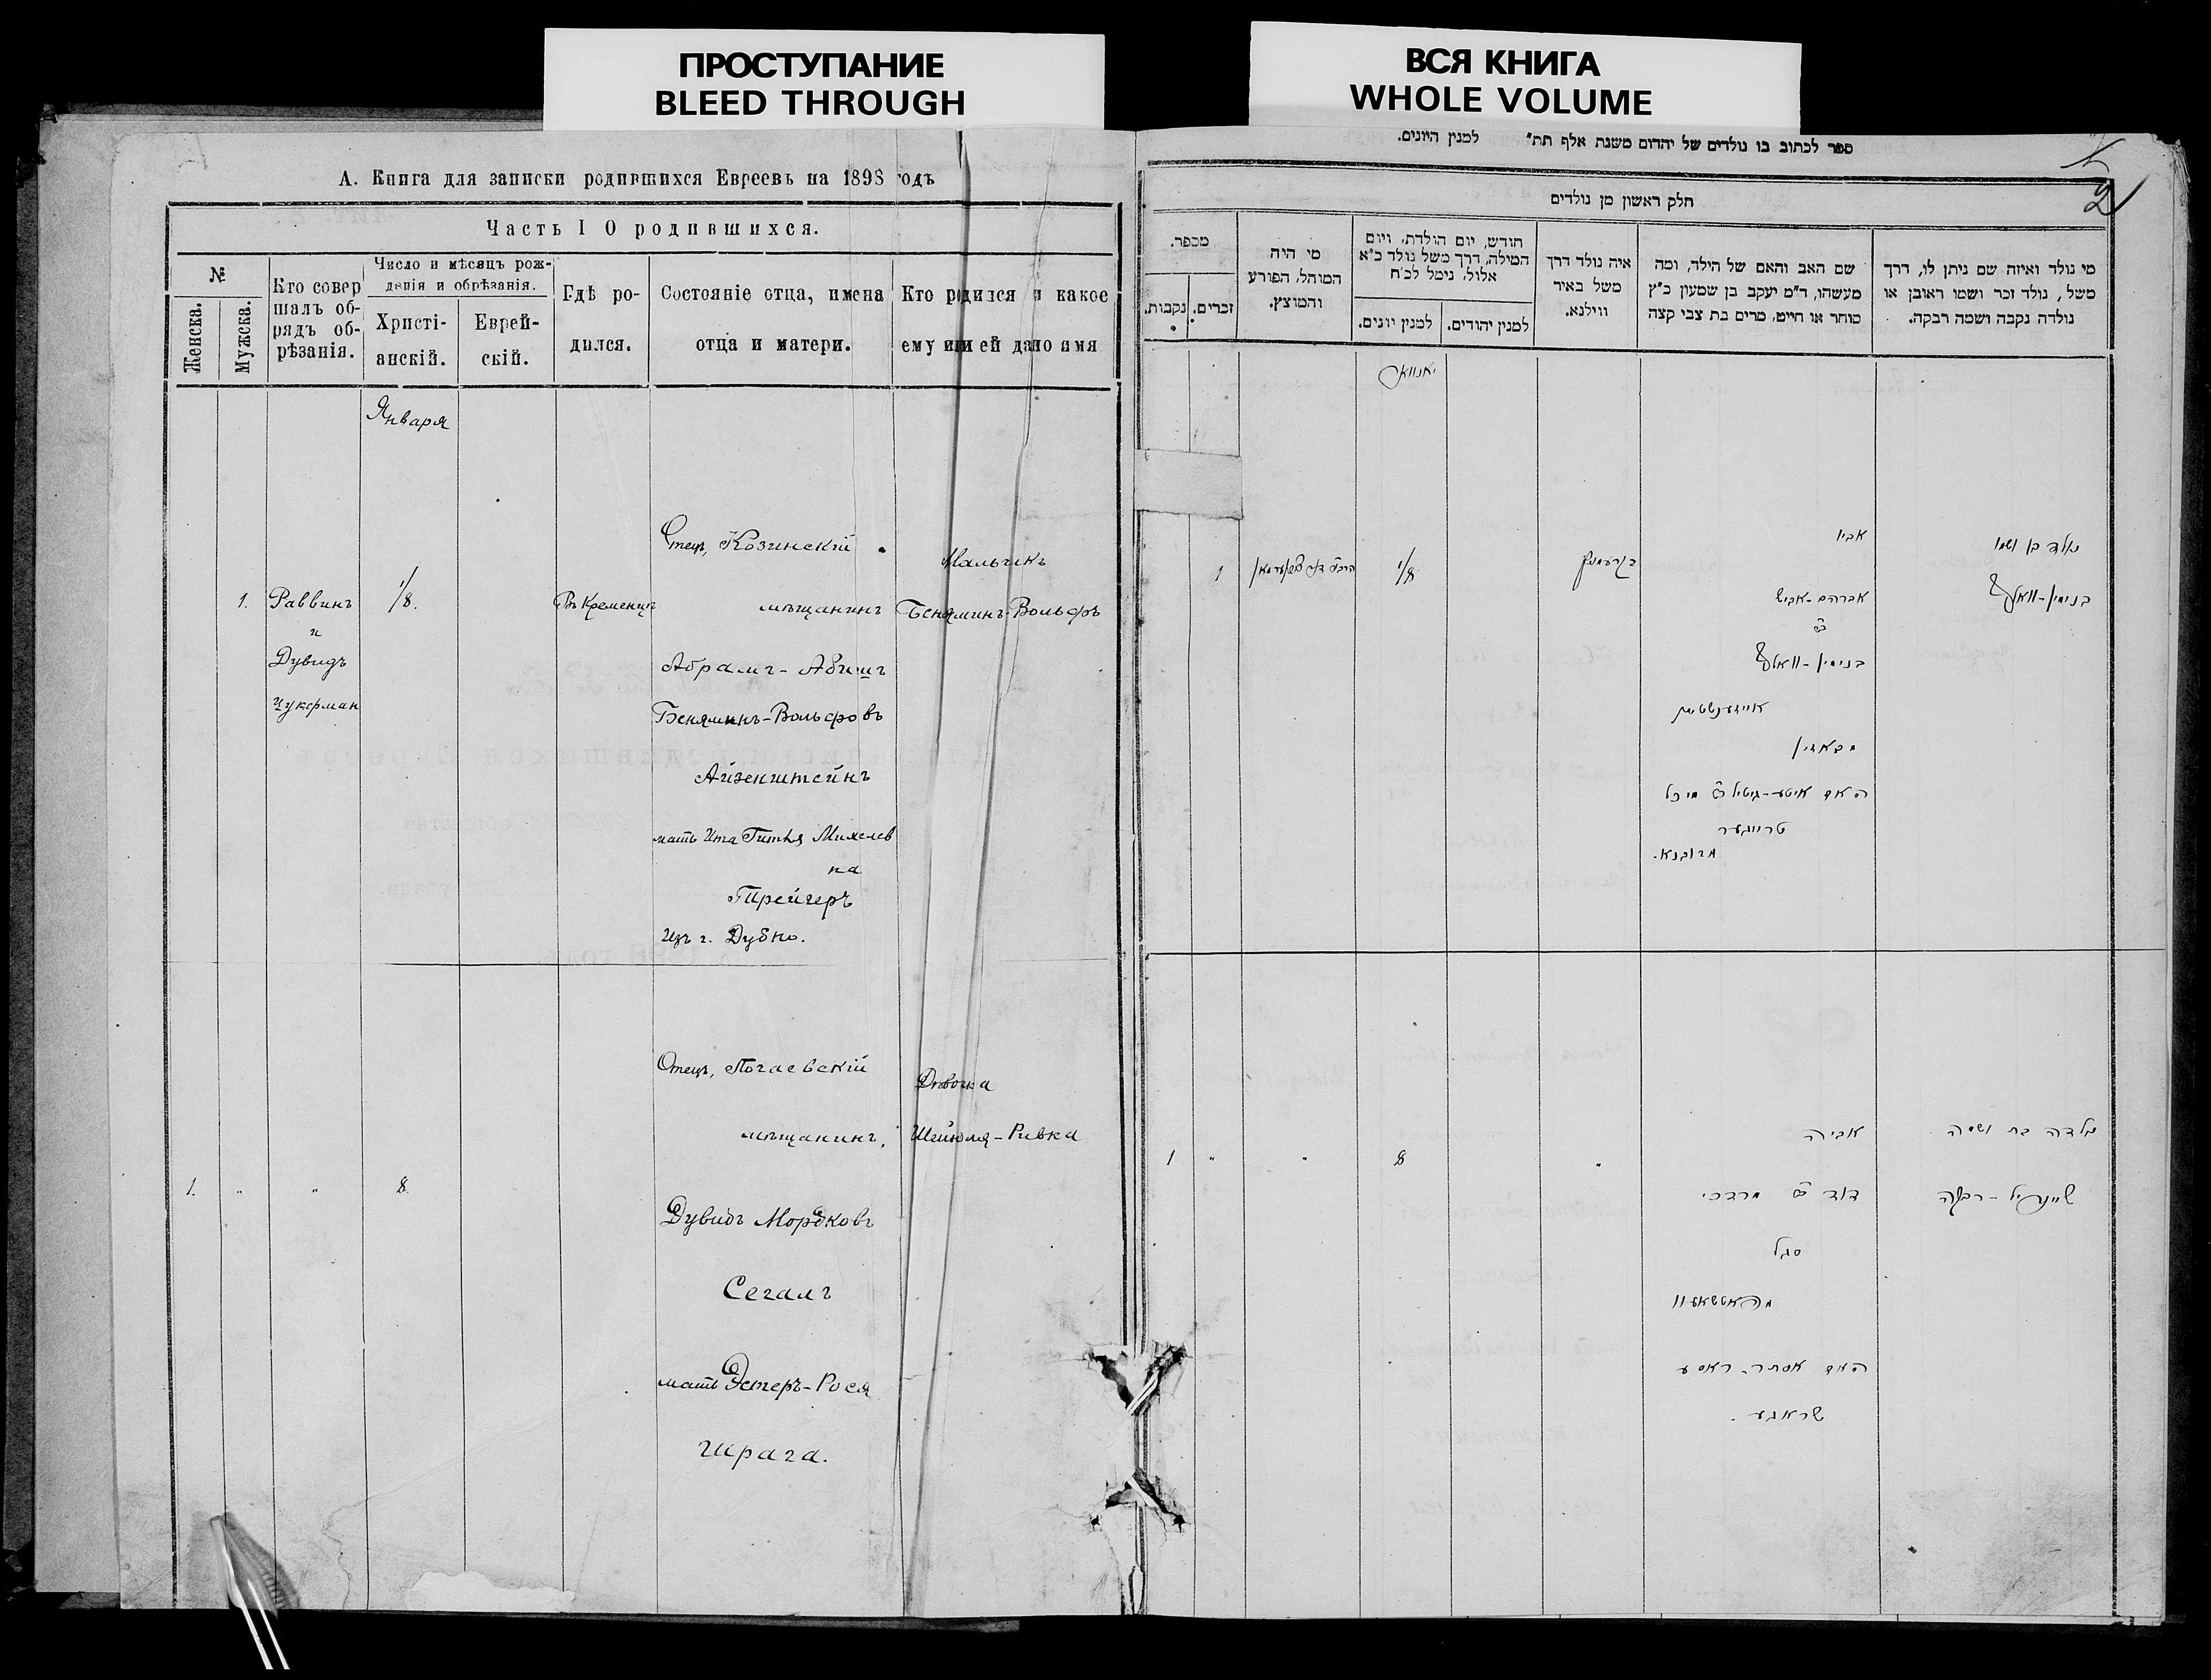 ПРОСТУПАНИЕ
BLEED THROUGH
ВСЯ КНИГА
WHOLE VOLUME
А. Книга для записки родившихся Евреевъ на 1898 годъ
Часть I О родившихся.
№
Женска.
Мужска.
Кто совер
шалъ об-
рядъ об-
рѣзанія.
Число и мѣсяцъ рож-
денія и обрѣзанія.
Христі-
анскій.
Еврей-
скій.
Гдѣ ро-
дился.
Состояніе отца, имена
отца и матери.
Кто родился и какое
ему или ей дано имя
Января
1.
Раввинъ
и
Дувидъ
Цукерман
1/8.
Въ Кременцѣ
Отецъ, Козинскій
мѣщанинъ
Абрамъ-Абишъ
Беняминъ-Вольфовъ
Айзенштейнъ
мать Ита Гитля Михелев
на
Трейгеръ
Изъ г. Дубно.
Мальчикъ
Беняминъ-Вольфъ
1.
"
"
8.
Отецъ, Почаевскій
мѣщанинъ,
Дувидъ Мордковъ
Сегалъ
мать Эстеръ-Рося
Шрага.
Дѣвочка
Шейндля-Ривка
ספר לכתוב בו נולדים של יהדום משנת אלף תת״ למנין היונים.
2
חלק ראשון מן נולדים
מי נולד ואיזה שם ניתן לו, דרך
משל, נולד זכר ושמו ראובן או
נולדה נקבה ושמה רבקה.
שם האב והאם של הילד, ומה
מעשהו, ד״מ יעקב בן שמעון כ״ץ
סוחר או חייט, מרים בת צבי קצה
איה נולד דרך
משל באיר
ווילנא.
חודש, יום הולדת, ויום
המילה, דרך משל נולד כ״א
אלול, נימל לכ״ח
למנין יהודים.
למנין יונים.
מי היה
המוהל, הפורע
והמוצץ.
מספר.
זכרים.
נקבות.
יאנוואר
נולד בן ושמו
בנימין-וואלף
אביו
אברהם-אביש
ב״ר
בנימין-וואלף
אייזענשטיין
מקאזין
האם איטע-גיטיל ב״ר מיכל
טרייגער
מדובנא.
קרעמניץ
1/8
1
נולדה בת ושמה
שיינדיל-רבקה
אביה
דוד ב״ר מרדכי
סגל
מפאטשאיוו
האם אסתר-ראסע
שראגע.
"
8
"
"
1